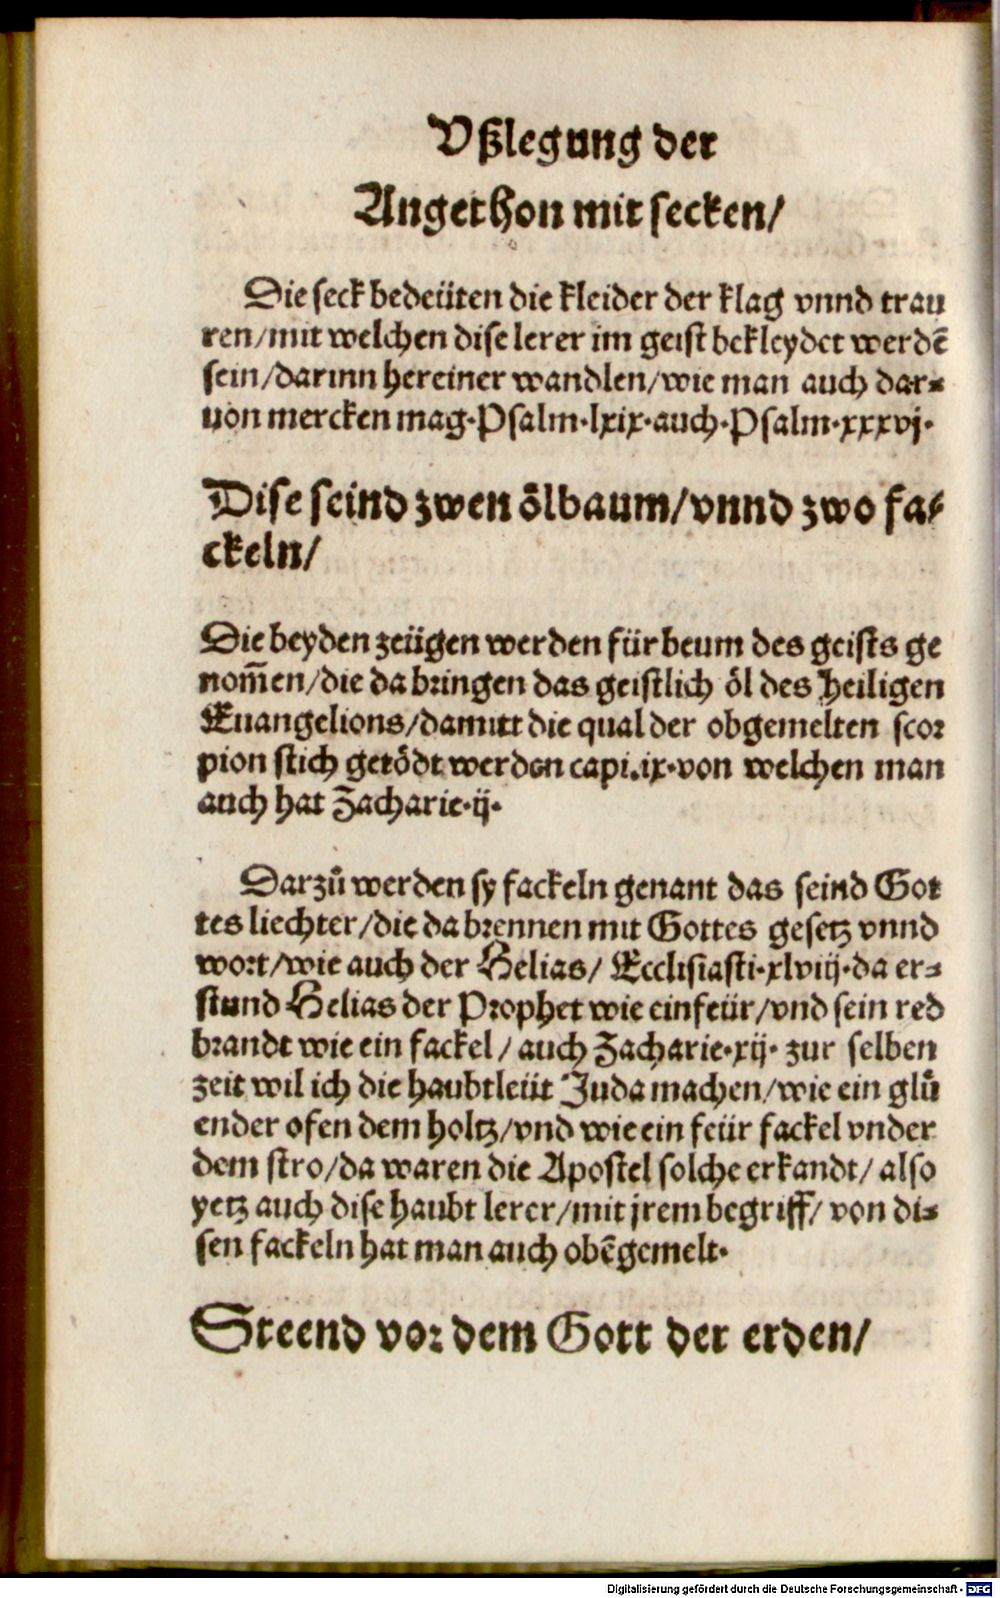 Vßlegung der
Angethon mit secken/
Die seck bedeüten die kleider der klag vnnd trau
ren/mit welchen dise lerer im geist bekleydet werdē
sein/darinn hereiner wandlen/wie man auch dar⸗
uon mercken mag·Psalm·lxix·auch·Psalm·xxxvj·
Dise seind zwen ölbaum/vnnd zwo fa⸗
ckeln/
Die beyden zeügen werden für beum des geists ge
nom̄en/die da bringen das geistlich öl des heiligen
Euangelions/damitt die qual der obgemelten scor
pion stich getödt werden capi.ix·von welchen man
auch hat Zacharie·ij·
Darzů werden sy fackeln genant das seind Got
tes liechter/die da brennen mit Gottes gesetz vnnd
wort/wie auch der Helias/ Ecclisiasti·xlviij·da er⸗
stund Helias der Prophet wie ein feür/vnd sein red
brandt wie ein fackel/ auch Zacharie·xij· zur selben
zeit wil ich die haubtleüt Juda machen/wie ein glů
ender ofen dem holtz/vnd wie ein feür fackel vnder
dem stro/da waren die Apostel solche erkandt/ also
yetz auch dise haubt lerer/mit jrem begriff/ von di⸗
sen fackeln hat man auch obēgemelt·
Steend vor dem Gott der erden/
Digitalisierung gefördert durch die Deutsche Forschungsgemeinschaft - DFG